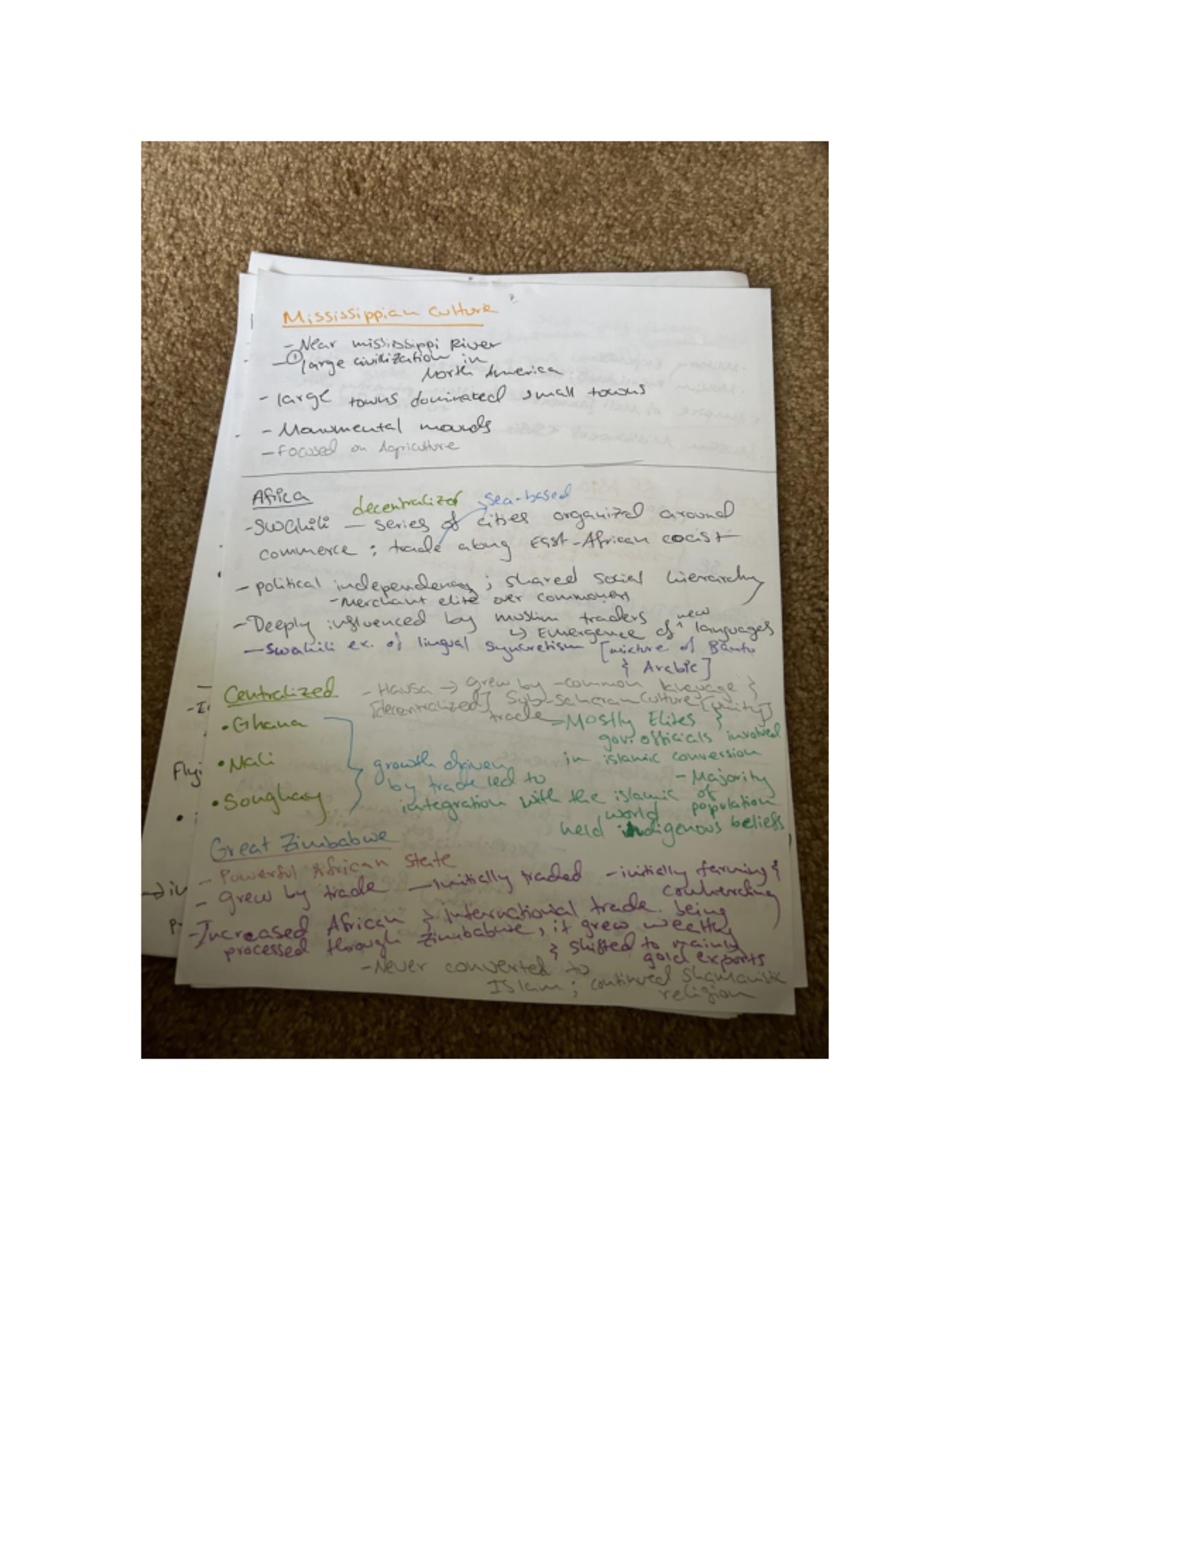 Mississippian Culture
- Near mississippi River
- ① large civilization in
North America
- large towns dominated small towns
- Monumental mounds
- Focused on Agriculture
Africa
decentralized sea-based
- Swahili — series of cities organized around
commerce ; trade along East-African coast
- political independency ; shared social hierarchy
- Merchant elite over commoners
- Deeply influenced by muslim traders
↳ Emergence of ^ new languages
— Swahili ex. of lingual syncretism [mixture of Bantu
& Arabic]
Centralized
- Hausa → grew by - common language &
[decentralized] Sub-saharan culture [unity]
trade
• Ghana
• Mali
• Songhay
growth driven
by trade led to
integration with the islamic
world
- Mostly Elites &
gov. officials involved
in islamic conversion
- Majority
of population
held indigenous beliefs
Great Zimbabwe
- Powerful African State
- grew by trade — Initially traded - initially farming &
- Increased African & International trade being
processed through Zimbabwe, it grew
& shifted to mainly
gold exports
- Never converted to
Islam ; continued shamanistic
religion
Flyi